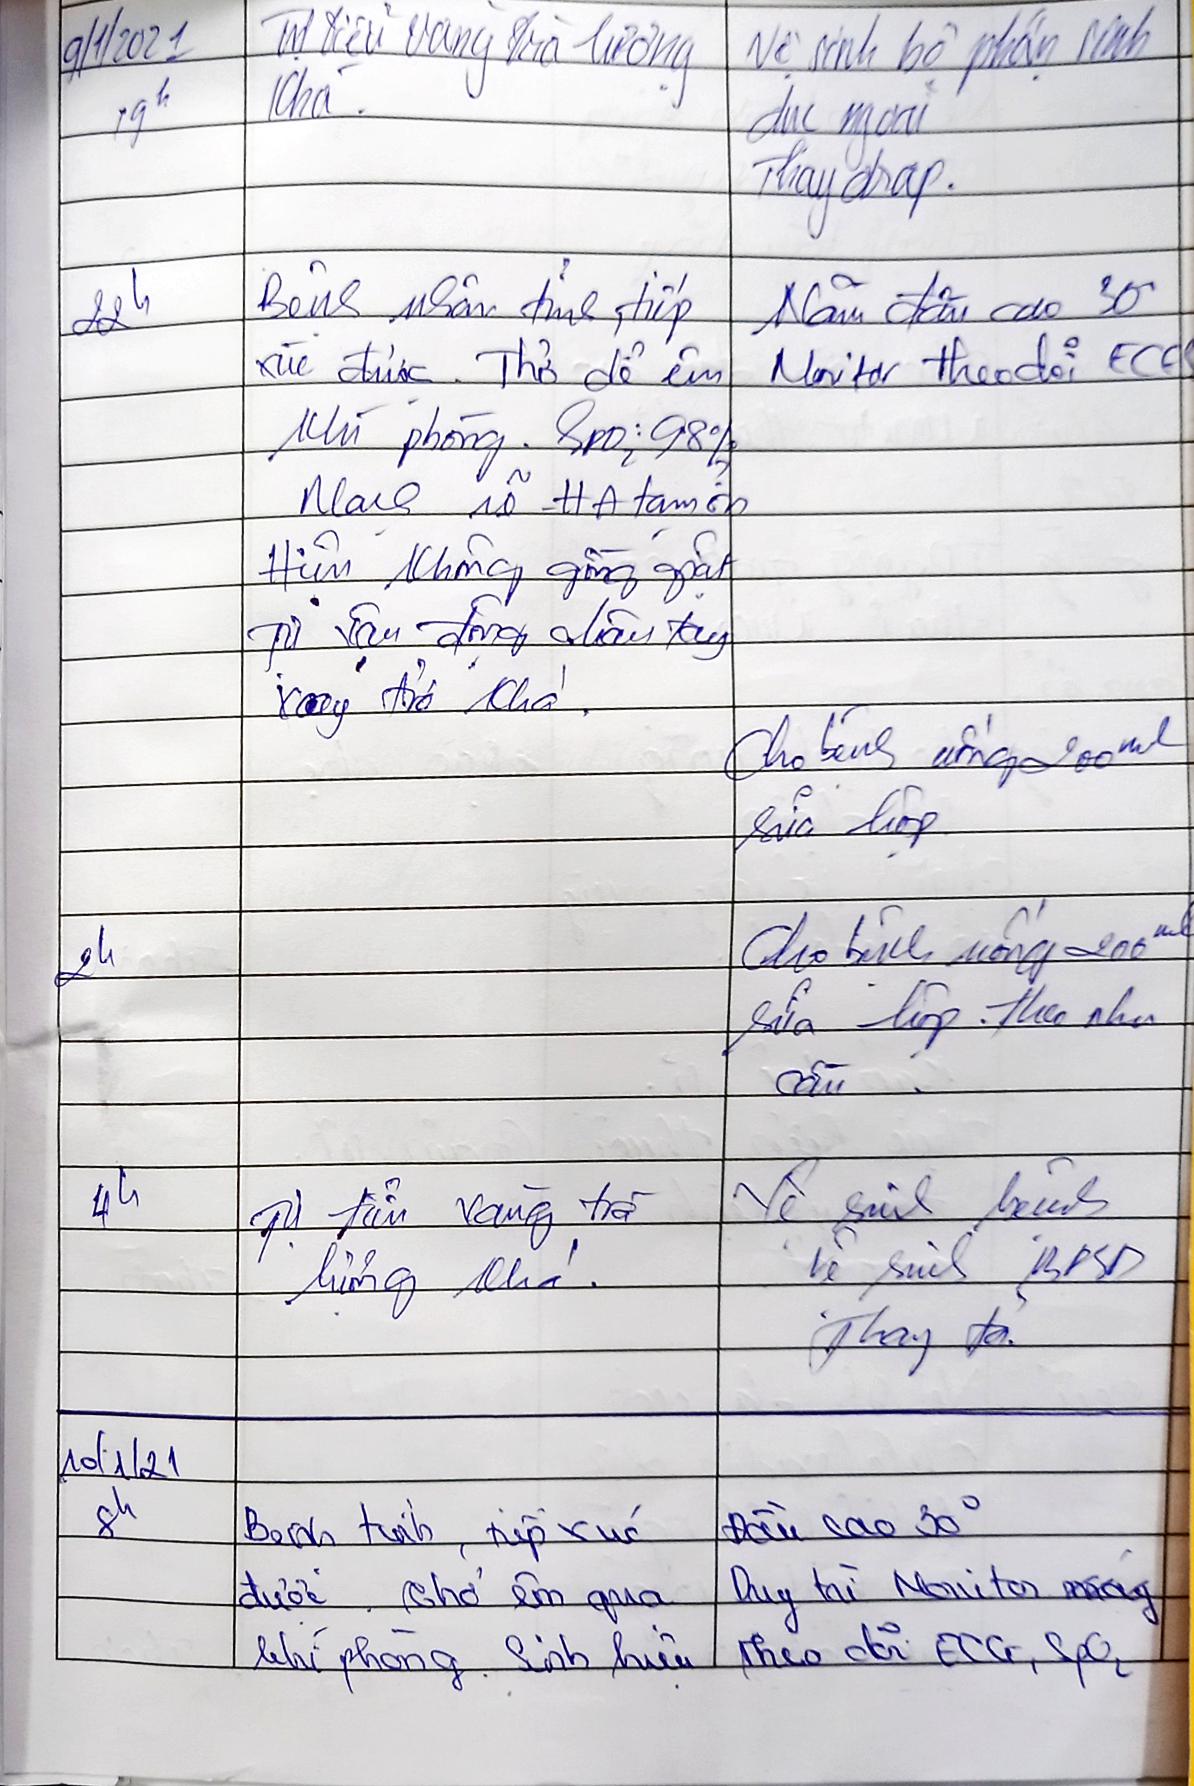 9/1/2021
19h
Tự tiểu vàng trà lượng
khá.
Vệ sinh bộ phận sinh
dục ngoài
Thay drap.
22h
Bệnh nhân tỉnh, tiếp
xúc được. Thở dễ êm
khí phòng. SpO2: 98%
Mạch rõ HA tạm ổn
Hiện không gồng giật
Tự vận động chân tay
xoay trở khá.
Nằm đầu cao 30°
Monitor theo dõi ECG
Cho bệnh uống 200ml
sữa hộp
2h
Cho bệnh uống 200ml
sữa hộp. theo nhu
cầu.
4h
Tự tiểu vàng trà
lượng khá.
Vệ sinh bệnh
Vệ sinh BPSD
Thay tả.
10/1/21
8h
Bệnh tỉnh, tiếp xúc
được. thở êm qua
khí phòng. Sinh hiệu
Đầu cao 30°
Duy trì Monitor
theo dõi ECG, SpO2